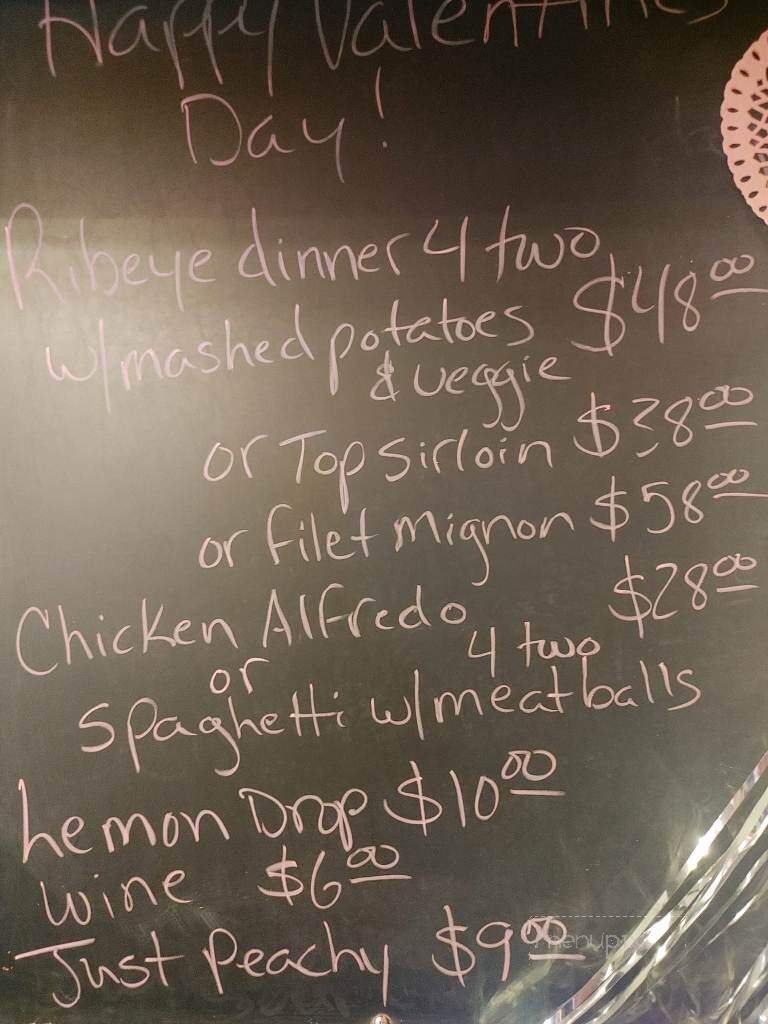 Happy Valentines
Day!
Ribeye dinner 4 two
w/mashed potatoes $48.00
& veggie
or Top sirloin $38.00
or filet mignon $58.00
Chicken Alfredo $28.00
or 4 two
spaghetti w/meatballs
Lemon Drop $10.00
wine $6.00
Just Peachy $9.00